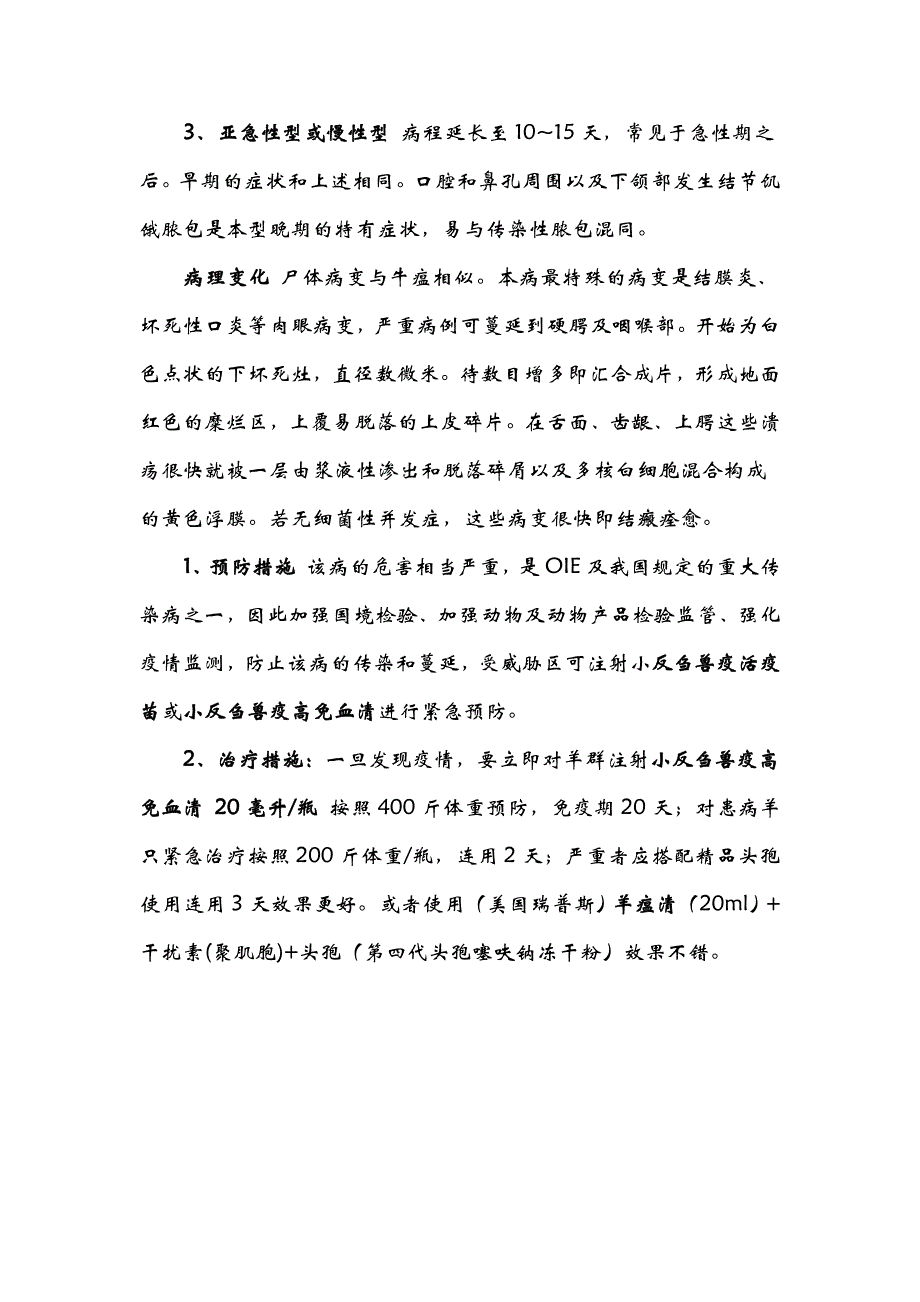 3、亚急性型或慢性型 病程延长至 10~15 天，常见于急性期之
后。早期的症状和上述相同。口腔和鼻孔周围以及下颌部发生结节饥
饿脓包是本型晚期的特有症状，易与传染性脓包混同。
病理变化 尸体病变与牛瘟相似。本病最特殊的病变是结膜炎、
坏死性口炎等肉眼病变，严重病例可蔓延到硬腭及咽喉部。开始为白
色点状的下坏死灶，直径数微米。待数目增多即汇合成片，形成地面
红色的糜烂区，上覆易脱落的上皮碎片。在舌面、齿龈、上腭这些溃
疡很快就被一层由浆液性渗出和脱落碎屑以及多核白细胞混合构成
的黄色浮膜。若无细菌性并发症，这些病变很快即结瘢痊愈。
1、预防措施 该病的危害相当严重，是 OIE 及我国规定的重大传
染病之一，因此加强国境检验、加强动物及动物产品检验监管、强化
疫情监测，防止该病的传染和蔓延，受威胁区可注射小反刍兽疫活疫
苗或小反刍兽疫高免血清进行紧急预防。
2、治疗措施：一旦发现疫情，要立即对羊群注射小反刍兽疫高
免血清 20 毫升/瓶 按照 400 斤体重预防，免疫期 20 天；对患病羊
只紧急治疗按照 200 斤体重/瓶，连用 2 天；严重者应搭配精品头孢
使用连用 3 天效果更好。或者使用（美国瑞普斯）羊瘟清（20ml）+
干扰素(聚肌胞)+头孢（第四代头孢噻呋钠冻干粉）效果不错。